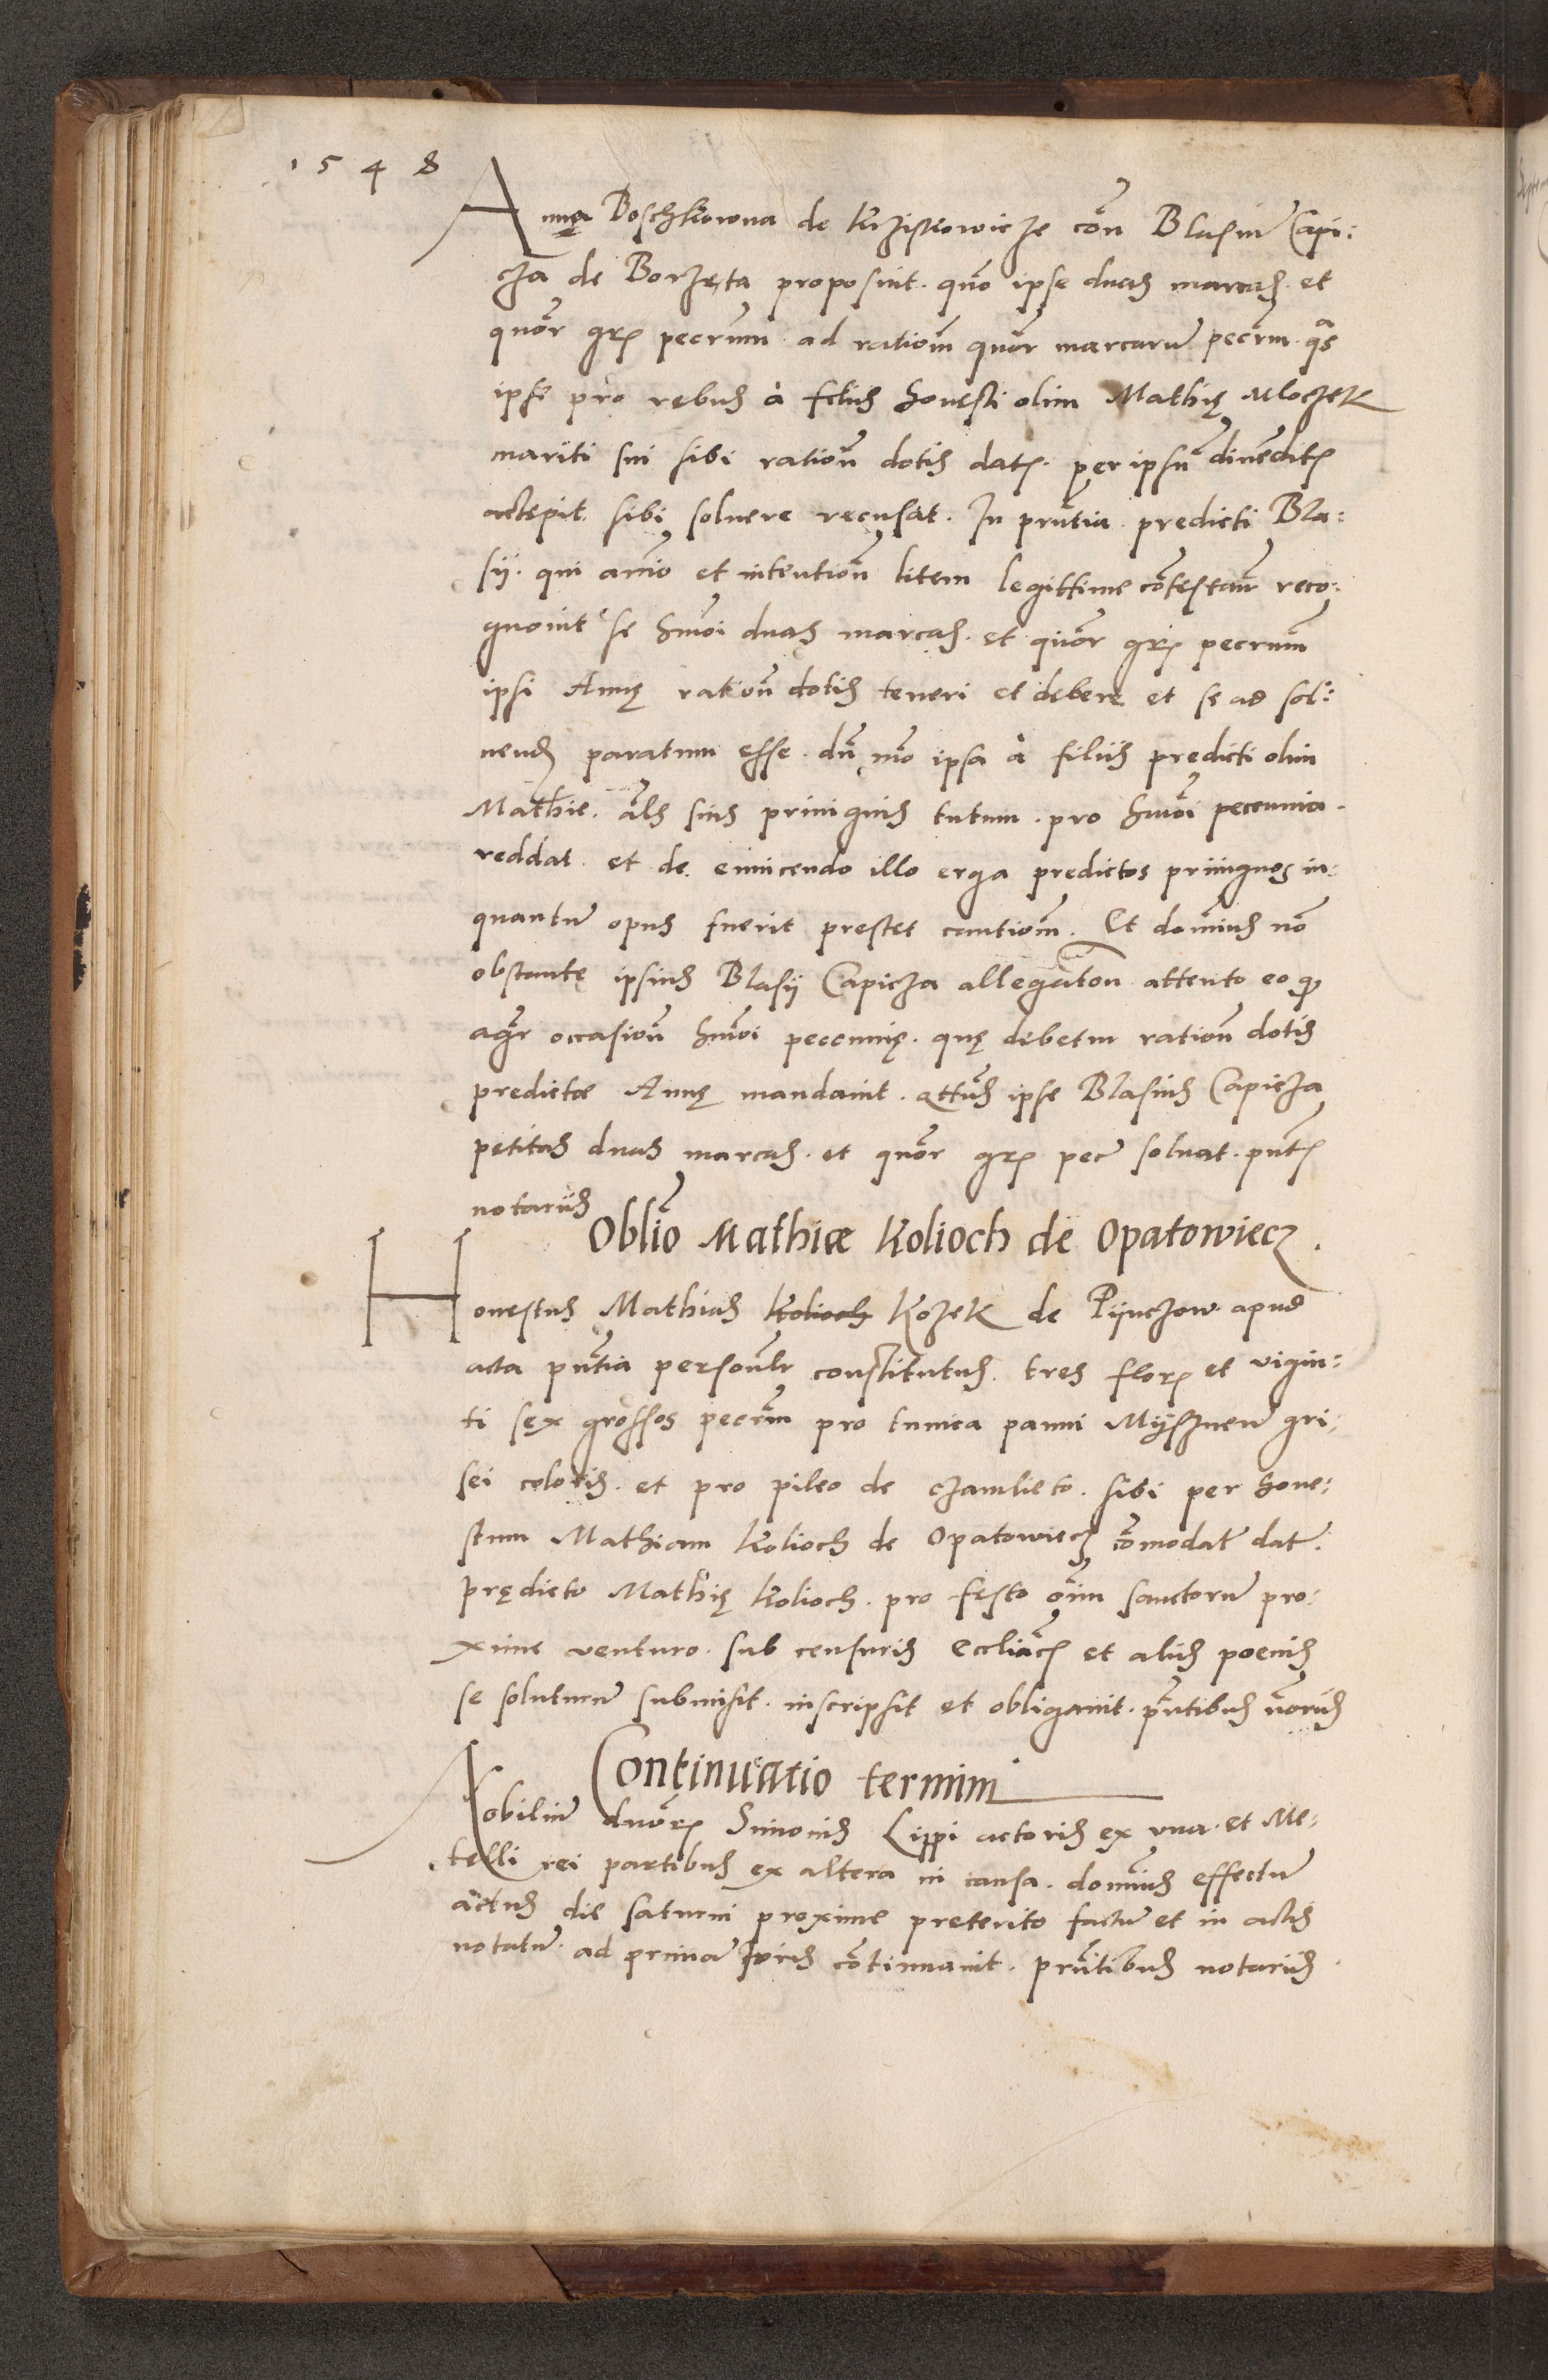 1548
Anna Boschkowna de Krzistkowicze con̄ Blasiū Capi:
cza de Borzęta proposuit. quō ipse duas marcas. et
quōr grs̄ pecrum̄ ad rationm̄ quōr marcarū pecrm̄. qs̄
ipse pro rebus à filiis honesti olim Mathię Moczek
mariti sui sibi ration̄ dotis dats̄. per ipsū diuēdits̄
accepit. sibi soluere recusat. In prn̄tia predicti Bla:
sij. qui anīo et intention̄ litem legittime cōtestan̄ reco:
gnouit se hm̄oi duas marcas. et quōr grs̄ pecrum̄
ipsi Annę ration̄ dotis teneri et debere et se ad sol:
uend̄ paratum esse. dū mō ipsa à filiis predicti olim
Mathie. als̄ suis priuignis tutum. pro hm̄oi pecunia.
reddat. et de euincendo illo erga predictos priuignos in:
quantū opus fuerit prestet cautionm̄. Et domin̄us nō
obstante ipsius Blasij Capicza allegation̄ attento eo q̄
agr̄ occasion̄ hm̄oi pecunię. quę debetur ration̄ dotis
predictæ Annę mandauit. qtn̄us ipse Blasius Capicza
petitas duas marcas. et quōr grs̄ pecū soluat. pn̄ts̄
notariis
Oblīo Mathiæ Kolioch de Opatowiecz.
Honestus Mathias Kolioch Kozek de Pijnczow apud
acta pn̄tia personalr̄ constitutus. tres flors̄ et vigin:
ti sex grossos pecrm̄ pro tunica panni Mijsznen̄ gri:
sei coloris. et pro pileo de czamlieto. sibi per hone:
stum Mathiam Kolioch de Opatowiecz cōmodat̄ dat̄.
prędicto Mathię Kolioch. pro festo oīm sanctorū pro:
xime venturo. sub censuris eccliācs̄ et aliis poenis
se soluturū submisit. inscripsit et obligauit. pn̄tibus nōriis
Continuatio termini
Nobiliū duōrs̄ Simonis Lippi actoris ex vna. et Me:
telli rei partibus ex altera in causa. domin̄us effectū
actus die saturni proxime preterito factū et in actis
notatū. ad primā Iuris cōtinuauit. prn̄tibus notariis